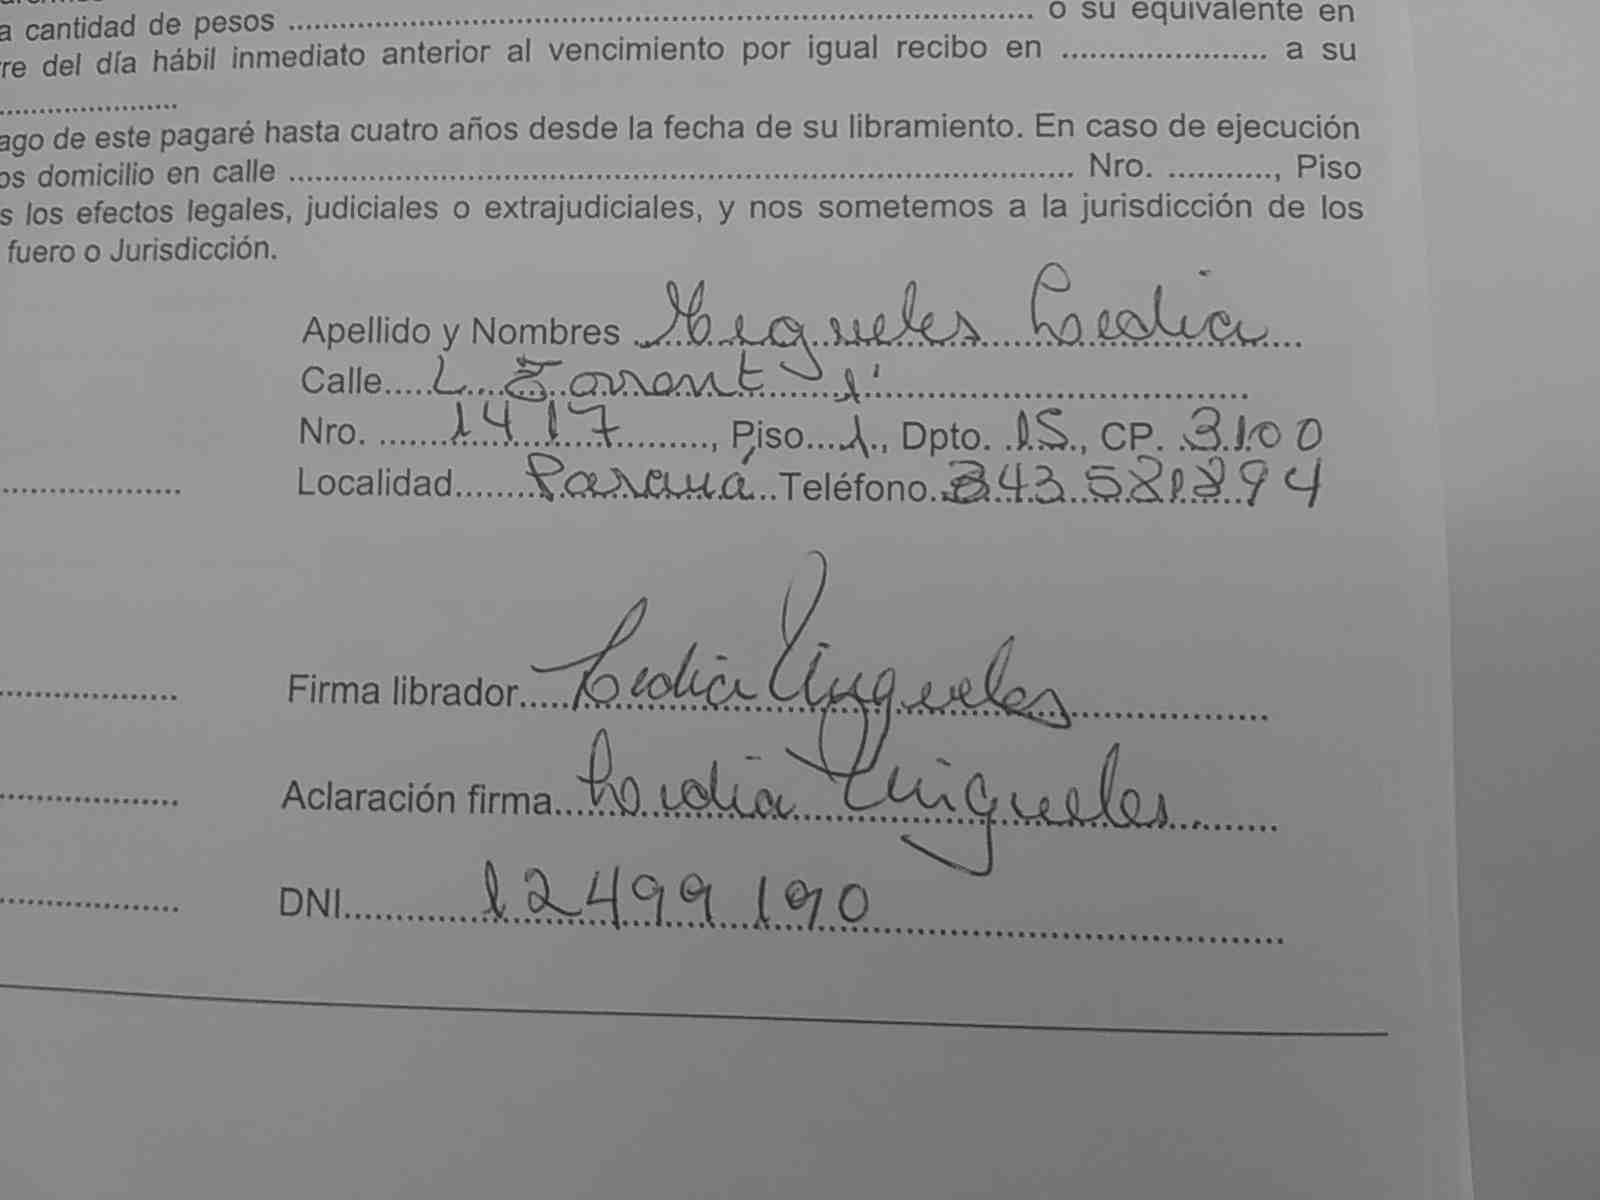 a cantidad de pesos ........................................ o su equivalente en
re del día hábil inmediato anterior al vencimiento por igual recibo en ...................... a su
......................
ago de este pagaré hasta cuatro años desde la fecha de su libramiento. En caso de ejecución
os domicilio en calle ........................................ Nro. ..........., Piso
s los efectos legales, judiciales o extrajudiciales, y nos sometemos a la jurisdicción de los
fuero o Jurisdicción.
Apellido y Nombres Migueles Ledia
Calle L. Torrent
Nro. 1417, Piso 1, Dpto. 15, CP. 3100
Localidad Paraná Teléfono
Firma librador Ledia Migueles
Aclaración firma Ledia Migueles
DNI 12499190